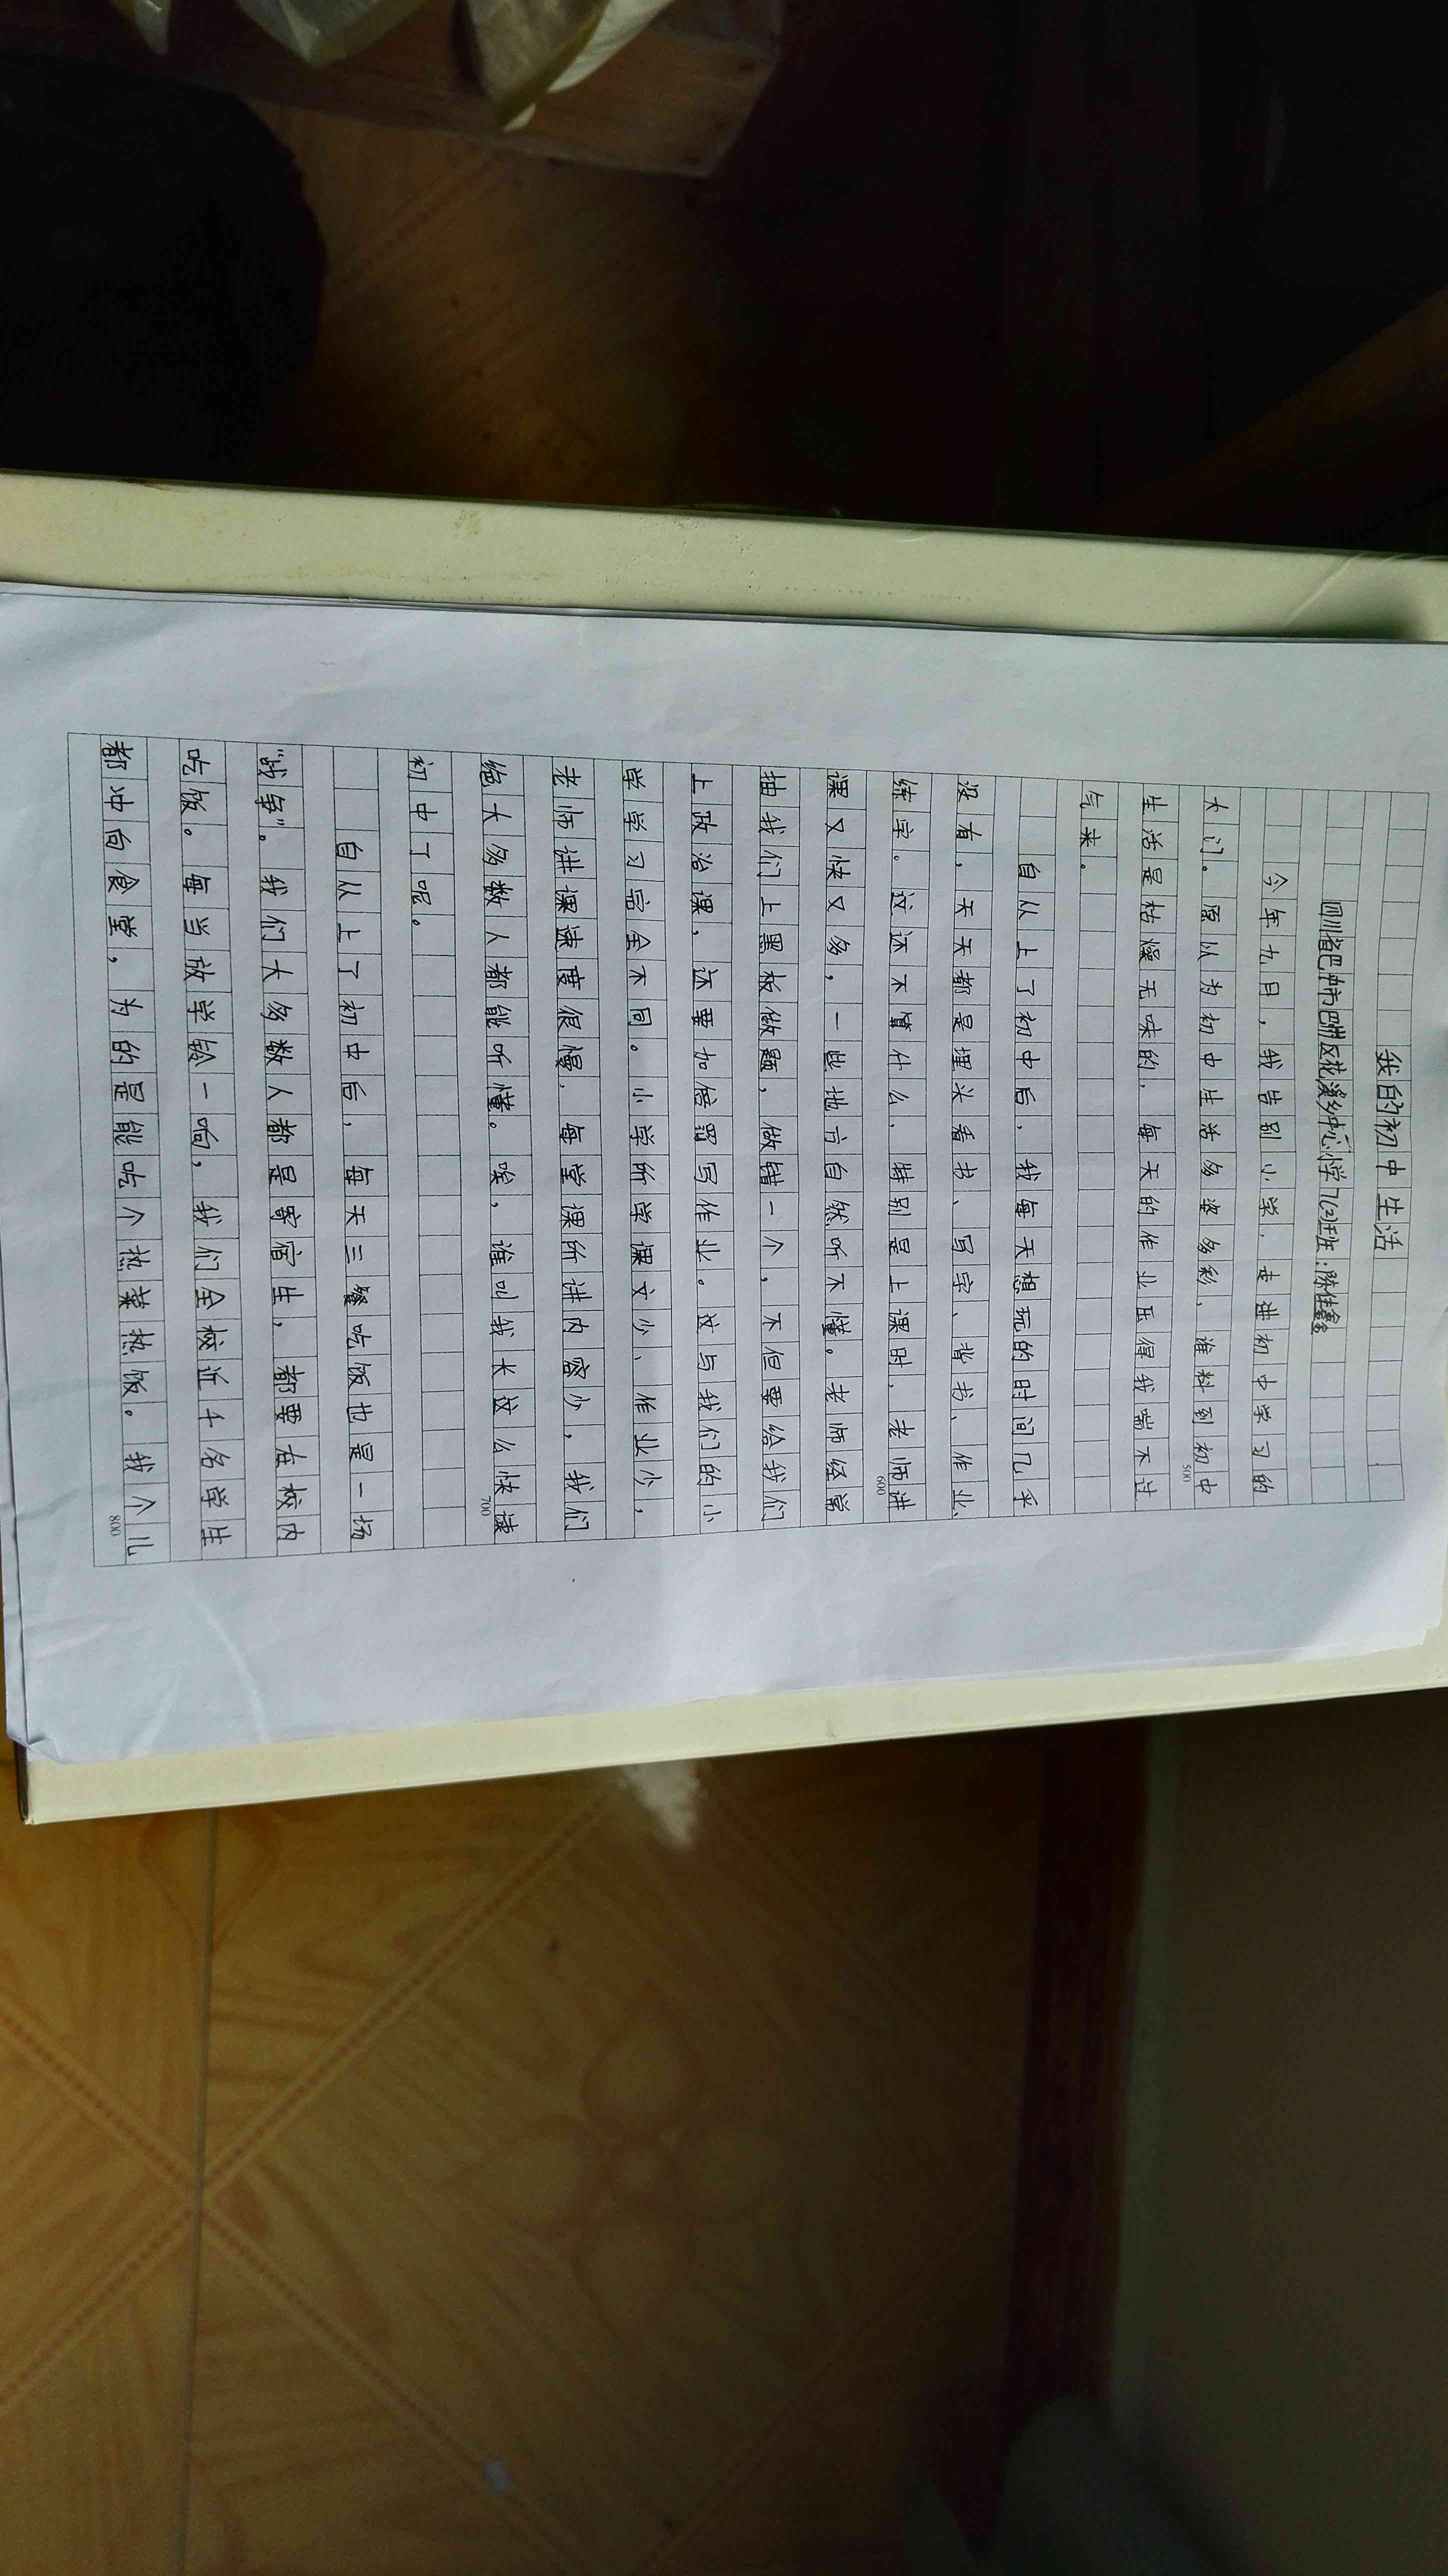 我的初中生活
四川省巴中市巴州区花溪乡中心小学七(2)班:陈佳鑫
今年九月，我告别小学，走进初中学习的
大门。原以为初中生活多姿多彩，谁料到初中
500
生活是枯燥无味的，每天的作业压得我喘不过
气来。
自从上了初中后，我每天想玩的时间几乎
没有，天天都是埋头看书、写字、背书、作业、
练字。这还不算什么，特别是上课时，老师讲
600
课又快又多，一些地方自然听不懂。老师经常
抽我们上黑板做题，做错一个，不但要给我们
上政治课，还要加倍罚写作业。这与我们的小
学学习完全不同。小学所学课文少、作业少，
老师讲课速度很慢，每堂课所讲内容少，我们
绝大多数人都能听懂。唉，谁叫我长这么快读
700
初中了呢。
自从上了初中后，每天三餐吃饭也是一场
“战争”。我们大多数人都是寄宿生，都要在校内
吃饭。每当放学铃一响，我们全校近千名学生
都冲向食堂，为的是能吃个热菜热饭。我个儿
800